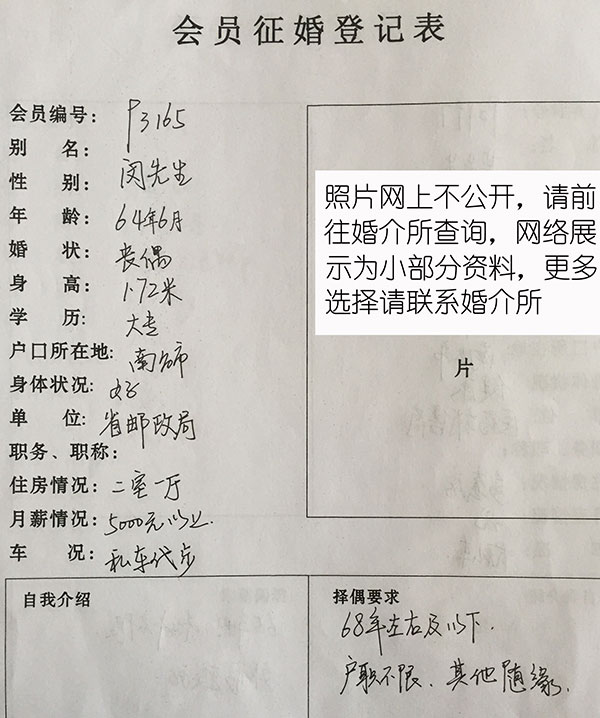 会员征婚登记表
会员编号： P3165
别 名：
性 别： 闵先生
年 龄： 64年6月
婚 状： 丧偶
身 高： 1.72米
学 历： 大专
户口所在地: 南昌市
身体状况: 好
单 位: 省邮政局
职务、职称：
住房情况: 二室一厅
月薪情况: 5000元以上
车 况: 私车代步
照片网上不公开，请前
往婚介所查询，网络展
示为小部分资料，更多
选择请联系婚介所
片
自我介绍
择偶要求
68年左右及以下.
户职不限、其他随缘.